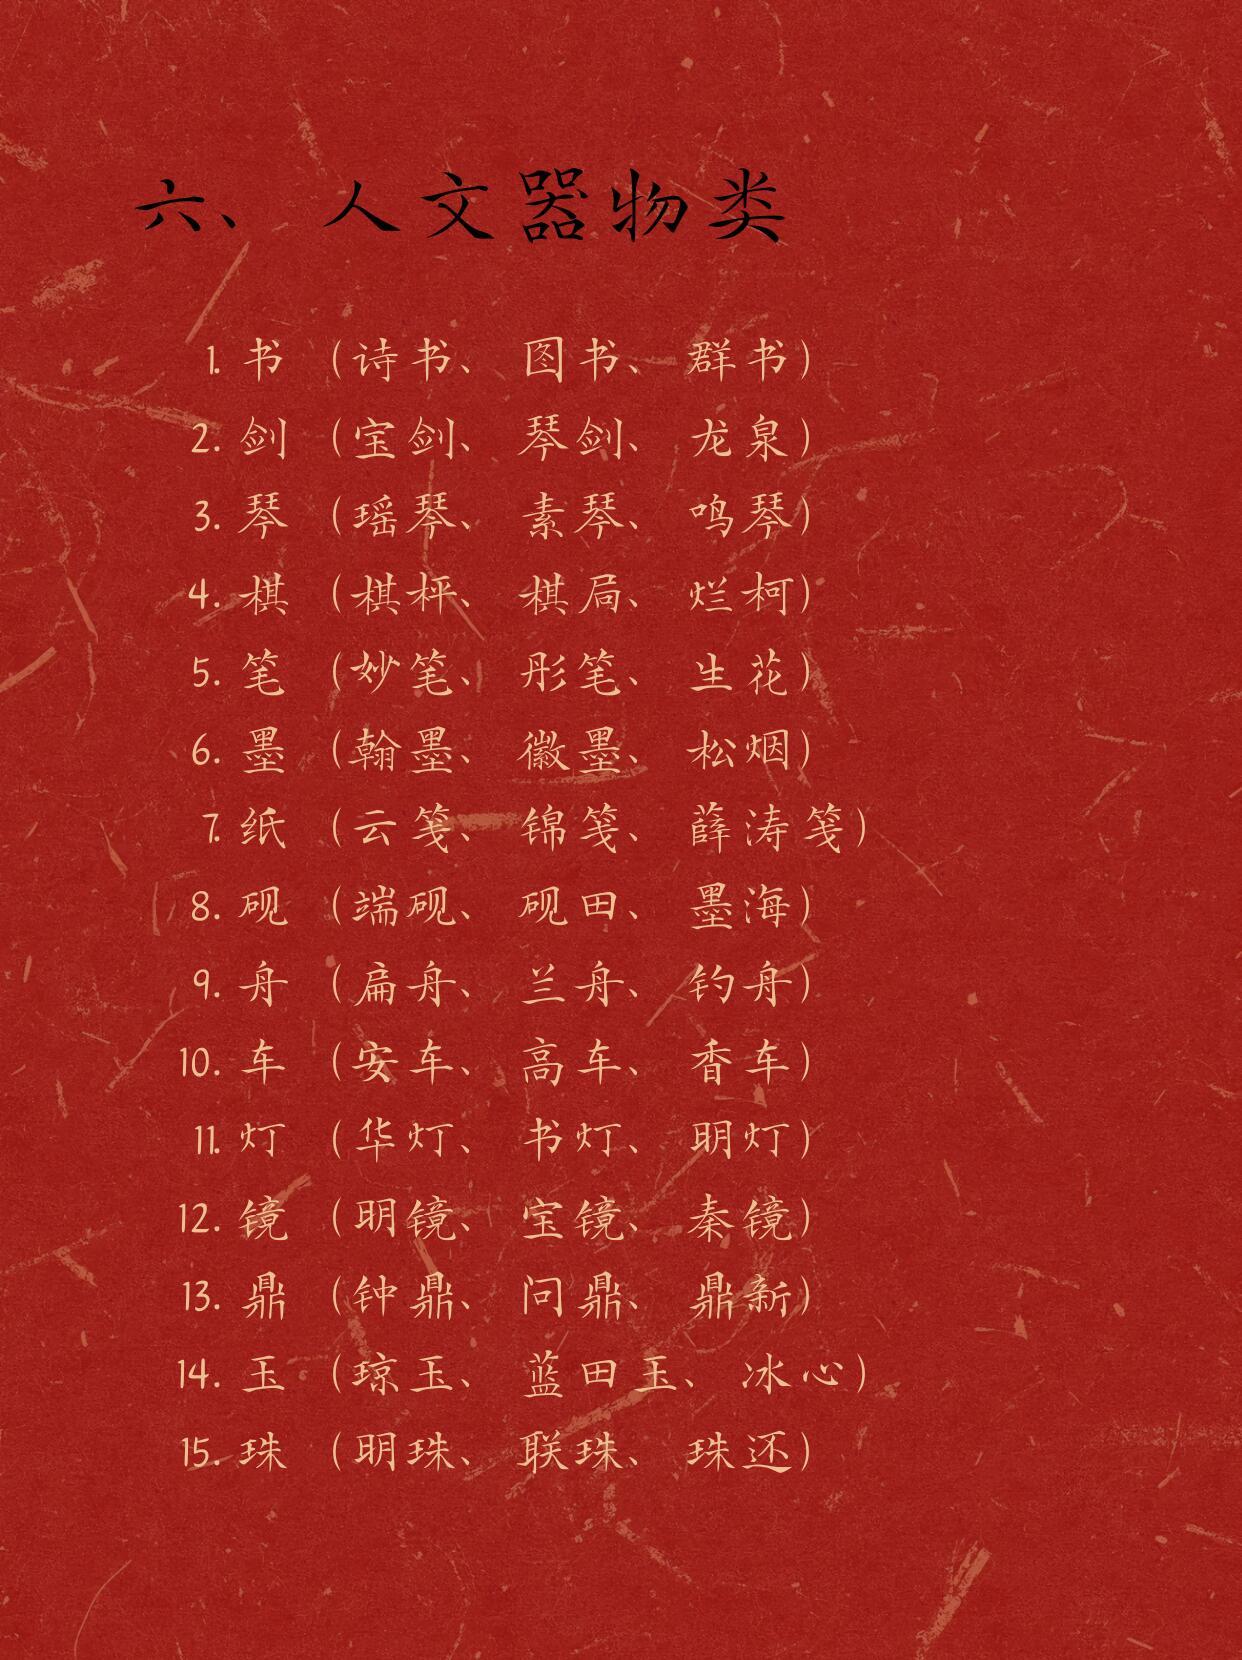 六、人文器物类
1. 书（诗书、图书、群书）
2. 剑（宝剑、琴剑、龙泉）
3. 琴（瑶琴、素琴、鸣琴）
4. 棋（棋枰、棋局、烂柯）
5. 笔（妙笔、彤笔、生花）
6. 墨（翰墨、徽墨、松烟）
7. 纸（云笺、锦笺、薛涛笺）
8. 砚（端砚、砚田、墨海）
9. 舟（扁舟、兰舟、钓舟）
10. 车（安车、高车、香车）
11. 灯（华灯、书灯、明灯）
12. 镜（明镜、宝镜、秦镜）
13. 鼎（钟鼎、问鼎、鼎新）
14. 玉（琼玉、蓝田玉、冰心）
15. 珠（明珠、联珠、珠还）